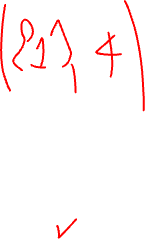 ({1}, 4)
✓